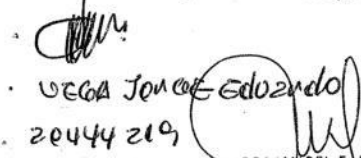 VEGA JORGE Eduardo
20444219